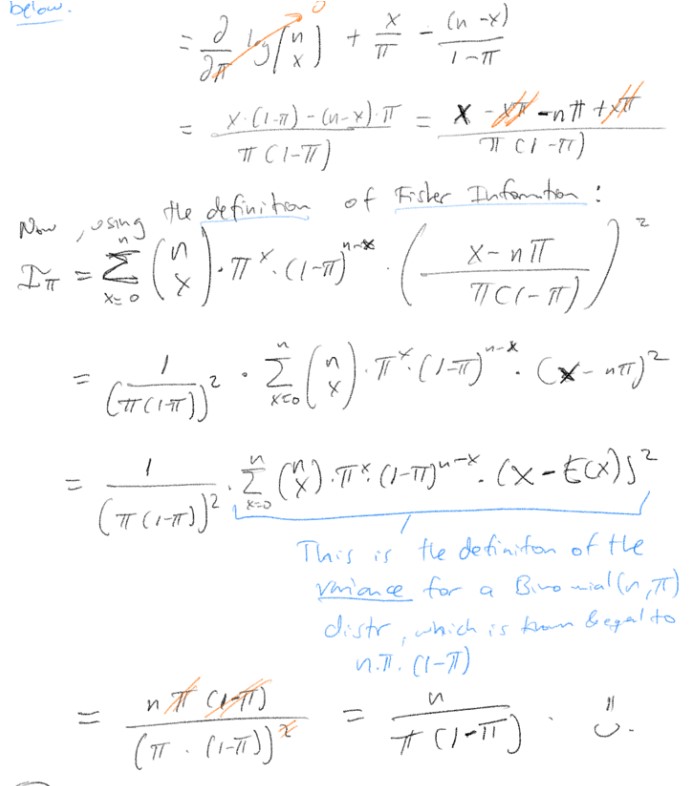 below.
= ∂/∂π log(n x) 0 + x/π - (n-x)/(1-π)
= (x·(1-π)-(n-x)·π)/(π(1-π)) = (x - xπ - nπ + xπ)/(π(1-π))
Now, using the definition of Fisher Information:
I_π = Σ_{x=0}^{n} (n x)·π^x·(1-π)^{n-x}·((x-nπ)/(π(1-π)))^2
= 1/(π(1-π))^2 · Σ_{x=0}^{n} (n x)·π^x·(1-π)^{n-x}·(x-nπ)^2
= 1/(π(1-π))^2 · Σ_{x=0}^{n} (n x)·π^x·(1-π)^{n-x}·(x-E(x))^2
This is the definiton of the
variance for a Binomial(n,π)
distr, which is known to be egal to
n.π.(1-π)
= (nπ(1-π))/(π·(1-π))^2 = n/(π(1-π)).